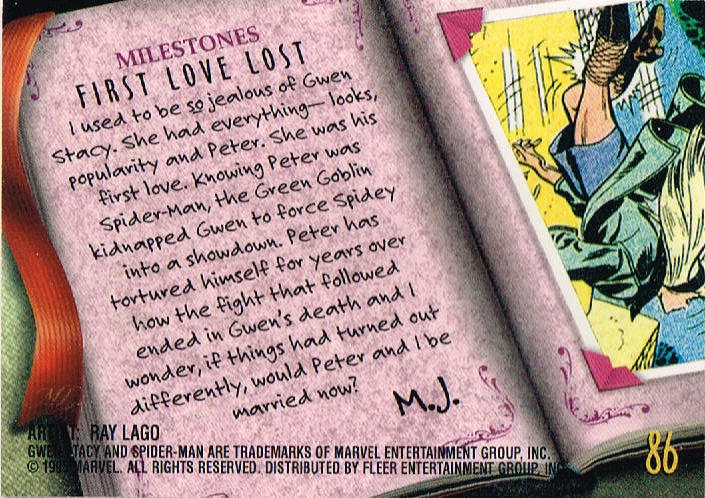 MILESTONES
FIRST LOVE LOST
I used to be so jealous of Gwen
Stacy. She had everything—looks,
popularity and Peter. She was his
first love. Knowing Peter was
Spider-Man, the Green Goblin
kidnapped Gwen to force Spidey
into a showdown. Peter has
tortured himself for years over
how the fight that followed
ended in Gwen's death and I
wonder, if things had turned out
differently, would Peter and I be
married now?
M.J.
ARTIST: RAY LAGO
GWEN STACY AND SPIDER-MAN ARE TRADEMARKS OF MARVEL ENTERTAINMENT GROUP, INC.
© 1995 MARVEL. ALL RIGHTS RESERVED. DISTRIBUTED BY FLEER ENTERTAINMENT GROUP, INC
86